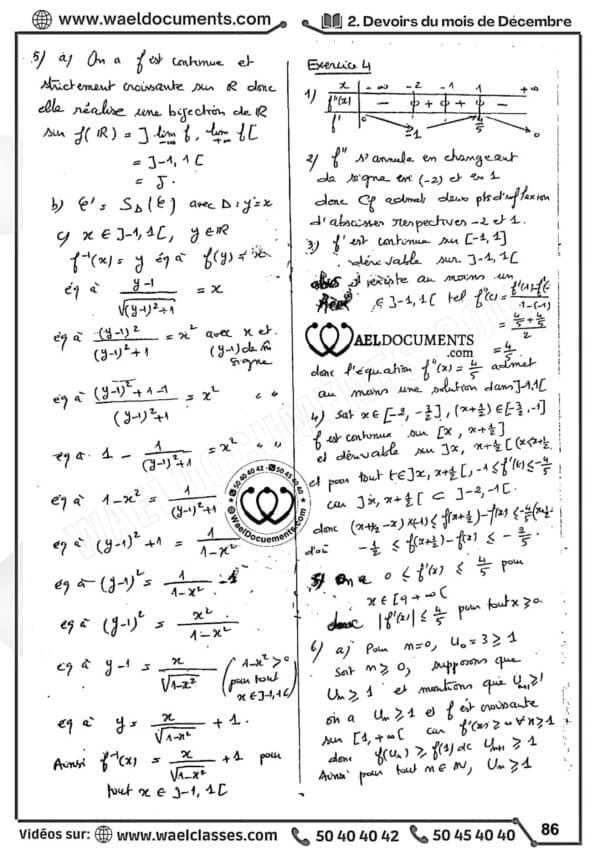 www.waeldocuments.com
2. Devoirs du mois de Décembre
5) a) On a f est continue et
strictement croissante sur ℝ donc
elle réalise une bijection de ℝ
sur f(ℝ) = ]lim f, lim f[
-∞ +∞
= ]-1, 1[
= J.
b) C' = S_D(C) avec D: y = x
c) x ∈ ]-1, 1[, y ∈ ℝ
f⁻¹(x) = y éq à f(y) = x
éq à (y-1)/√((y-1)²+1) = x
éq à (y-1)²/((y-1)²+1) = x² avec x et
(y-1) de même signe
éq à ((y-1)²+1-1)/((y-1)²+1) = x² " "
éq à 1 - 1/((y-1)²+1) = x² " "
éq à 1-x² = 1/((y-1)²+1)
éq à (y-1)²+1 = 1/(1-x²)
éq à (y-1)² = 1/(1-x²) - 1
éq à (y-1)² = x²/(1-x²)
éq à y-1 = x/√(1-x²) (1-x² > 0
pour tout
x ∈ ]-1, 1[)
éq à y = x/√(1-x²) + 1.
Ainsi f⁻¹(x) = x/√(1-x²) + 1 pour
tout x ∈ ]-1, 1[
Exercice 4
1) x -∞ -2 -1 1 +∞
f''(x) - 0 + 0 + 0 -
f' 0 -1 4/5 0
2) f'' s'annule en changeant
de signe en (-2) et en 1
donc Cf admet deux pts d'inflexion
d'abscisses respectives -2 et 1.
3) f' est continue sur [-1, 1]
dérivable sur ]-1, 1[
il existe au moins un
∈ ]-1, 1[ tel f''(c) = /(1-(-1))
= (4/5 + 4/5)/2
WAELDOCUMENTS
.com
donc l'équation f''(x) = 4/5 admet
au moins une solution dans ]-1, 1[
4) Soit x ∈ [-2, -3/2], (x+1/2) ∈ [-3/2, -1]
f est continue sur [x, x+1/2]
et dérivable sur ]x, x+1/2[ (x<x+1/2
et pour tout t ∈ ]x, x+1/2[, -1 ≤ f'(t) ≤ -4/5
car ]x, x+1/2[ ⊂ ]-2, -1[.
donc (x+1/2-x)×(-1) ≤ f(x+1/2)-f(x) ≤ -4/5(x+1/2
d'où -1/2 ≤ f(x+1/2)-f(x) ≤ -2/5.
5) On a 0 ≤ f'(x) ≤ 4/5 pour
x ∈ [0, +∞[
donc |f'(x)| ≤ 4/5 pour tout x ≥ 0.
6) a) Pour n=0, U₀ = 3 ≥ 1
Soit n ≥ 0, supposons que
Un ≥ 1 et montrons que Un+1 ≥ 1
on a Un ≥ 1 et f est croissante
sur [1, +∞[ car f'(x) ≥ 0 ∀x ≥ 1
donc f(Un) ≥ f(1) dc Un+1 ≥ 1
Ainsi pour tout n ∈ ℕ, Un ≥ 1
50 40 40 42 * 50 45 40 40
@WaelDocuements.com
Vidéos sur: www.waelclasses.com 50 40 40 42 50 45 40 40 86